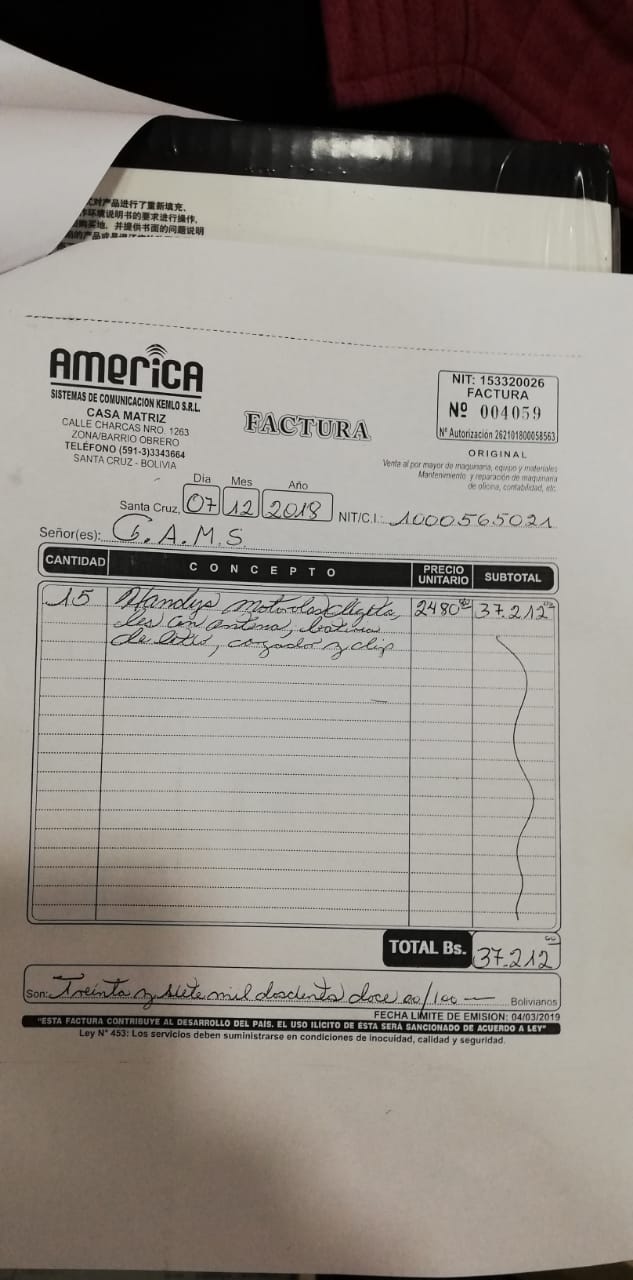 对产品进行了重新填充,
作环境说明书的要求进行操作,
购买地, 并提供书面的问题说明
america
SISTEMAS DE COMUNICACION KEMLO S.R.L.
CASA MATRIZ
CALLE CHARCAS NRO. 1263
ZONA/BARRIO OBRERO
TELÉFONO (591-3)3343664
SANTA CRUZ - BOLIVIA
FACTURA
NIT: 153320026
FACTURA
Nº 004059
Nº Autorización 262101800058563
ORIGINAL
Venta al por mayor de maquinaria, equipo y materiales
Mantenimiento y reparación de maquinaria
de oficina, contabilidad, etc.
Día Mes Año
Santa Cruz, 07 12 2018 NIT/C.I.: 1000565021
Señor(es): G.A.M.S.
CANTIDAD CONCEPTO PRECIO UNITARIO SUBTOTAL
15 Handys motorolas digita 2480 37.212
les con antena, bateria
de litio, cargador y clip
TOTAL Bs. 37.212
Son: Treinta y siete mil doscientos doce 00/100 Bolivianos
FECHA LIMITE DE EMISION: 04/03/2019
"ESTA FACTURA CONTRIBUYE AL DESARROLLO DEL PAÍS. EL USO ILÍCITO DE ÉSTA SERÁ SANCIONADO DE ACUERDO A LEY"
Ley N° 453: Los servicios deben suministrarse en condiciones de inocuidad, calidad y seguridad.